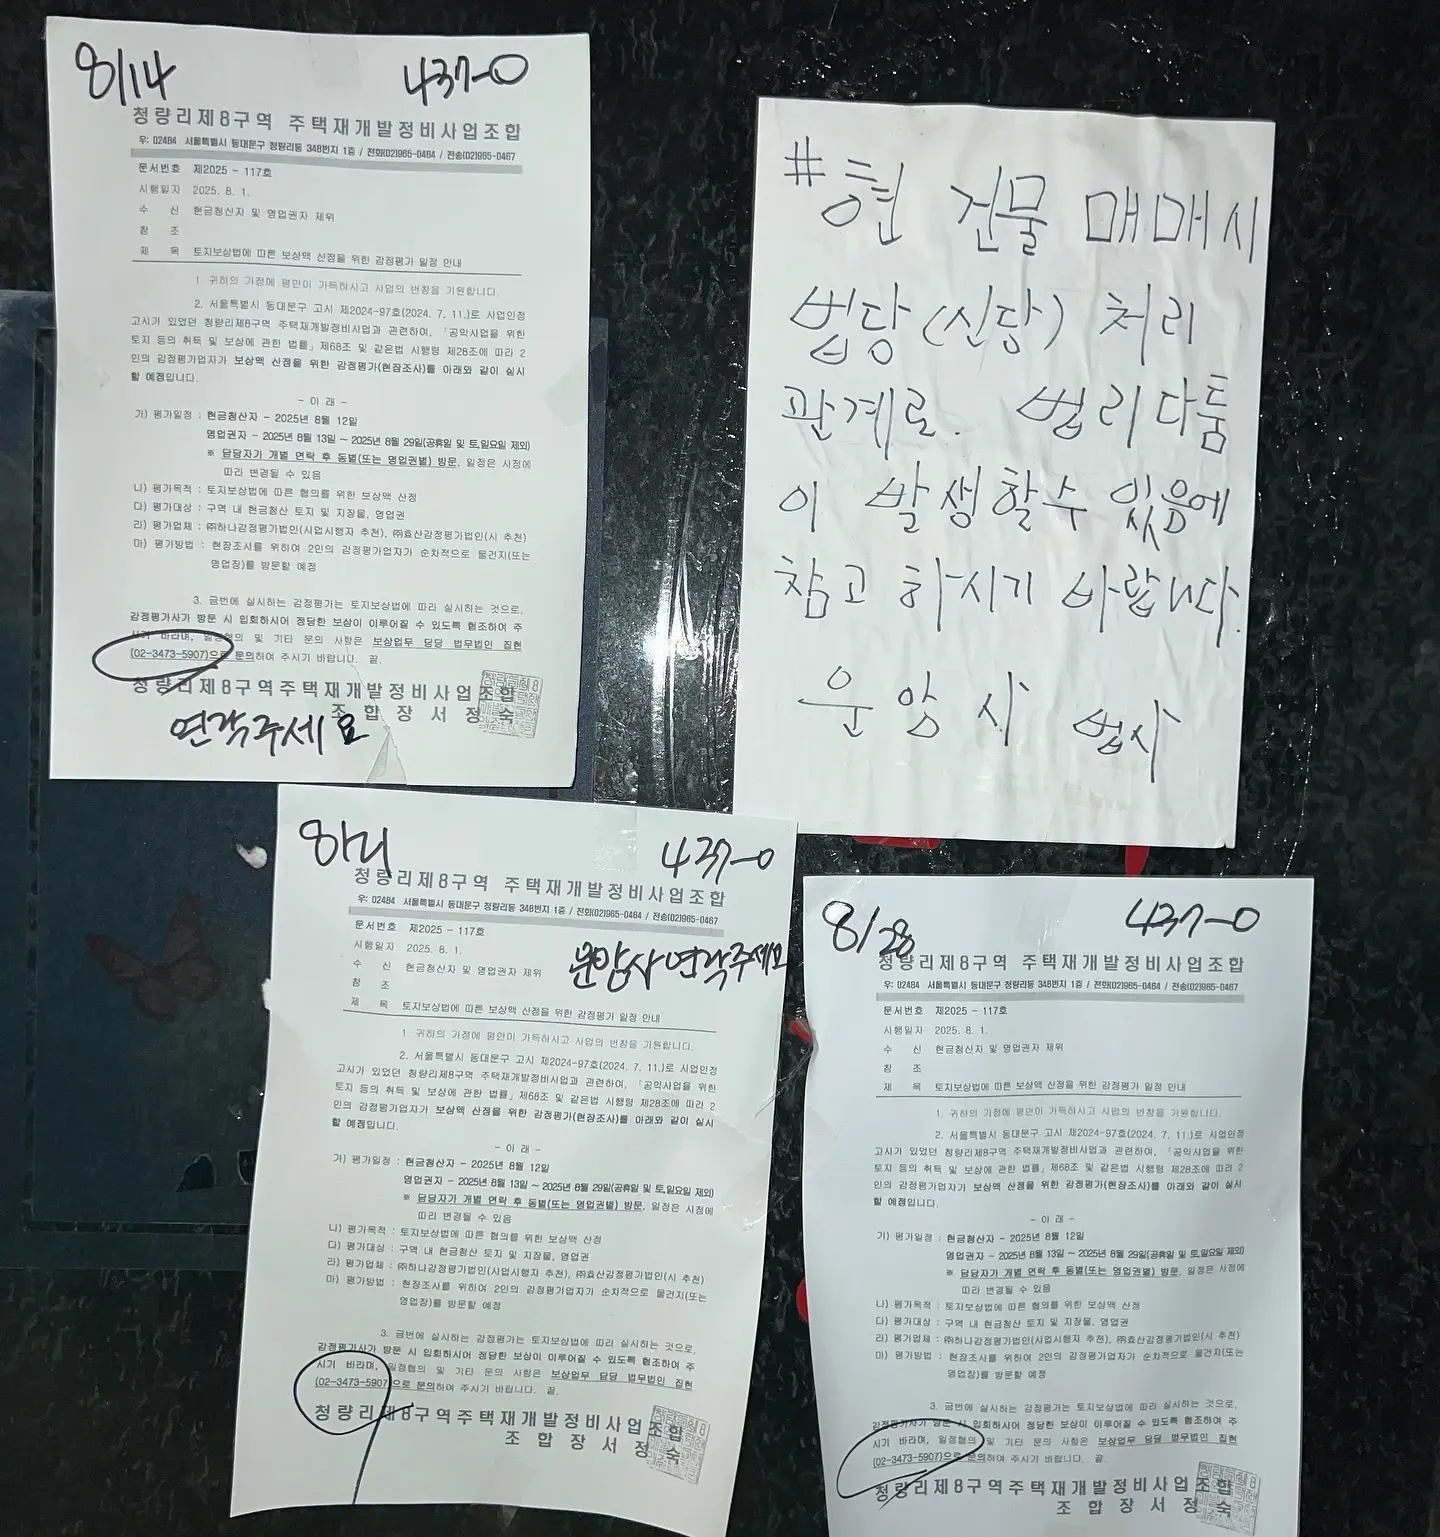 8/14 437-0
청량리제8구역 주택재개발정비사업조합
우: 02484 서울특별시 동대문구 청량리동 348번지 1층 / 전화(02)965-0464 / 전송(02)965-0467
문서번호 제2025 - 117호
시행일자 2025. 8. 1.
수 신 현금청산자 및 영업권자 제위
참 조
제 목 토지보상법에 따른 보상액 산정을 위한 감정평가 일정 안내
1. 귀하의 가정에 평안이 가득하시고 사업의 번창을 기원합니다.
2. 서울특별시 동대문구 고시 제2024-97호(2024. 7. 11.)로 사업인정
고시가 있었던 청량리제8구역 주택재개발정비사업과 관련하여, 「공익사업을 위한
토지 등의 취득 및 보상에 관한 법률」제68조 및 같은법 시행령 제28조에 따라 2
인의 감정평가업자가 보상액 산정을 위한 감정평가(현장조사)를 아래와 같이 실시
할 예정입니다.
- 이 래 -
가) 평가일정 : 현금청산자 - 2025년 8월 12일
영업권자 - 2025년 8월 13일 ~ 2025년 8월 29일(공휴일 및 토,일요일 제외)
※ 담당자가 개별 연락 후 동별(또는 영업권별) 방문, 일정은 사정에
따라 변경될 수 있음
나) 평가목적 : 토지보상법에 따른 협의를 위한 보상액 산정
다) 평가대상 : 구역 내 현금청산 토지 및 지장물, 영업권
라) 평가업체 : ㈜하나감정평가법인(사업시행자 추천), ㈜효산감정평가법인(시 추천)
마) 평가방법 : 현장조사를 위하여 2인의 감정평가업자가 순차적으로 물건지(또는
영업장)를 방문할 예정
3. 금번에 실시하는 감정평가는 토지보상법에 따라 실시하는 것으로,
감정평가사가 방문 시 입회하시어 정당한 보상이 이루어질 수 있도록 협조하여 주
시기 바라며, 일정협의 및 기타 문의 사항은 보상업무 담당 법무법인 집현
(02-3473-5907)으로 문의하여 주시기 바랍니다. 끝.
청량리제8구역주택재개발정비사업조합
조합장서정숙
연락주세요
#현 건물 매매시
법당(신당) 처리
관계로. 법리다툼
이 발생할수 있음에
참고 하시기 바랍니다.
운암사 법사
437-0
청량리제8구역 주택재개발정비사업조합
우: 02484 서울특별시 동대문구 청량리동 348번지 1층 / 전화(02)965-0464 / 전송(02)965-0467
문서번호 제2025 - 117호
운암사 연락주세요
시행일자 2025. 8. 1.
수 신 현금청산자 및 영업권자 제위
참 조
제 목 토지보상법에 따른 보상액 산정을 위한 감정평가 일정 안내
1. 귀하의 가정에 평안이 가득하시고 사업의 번창을 기원합니다.
2. 서울특별시 동대문구 고시 제2024-97호(2024. 7. 11.)로 사업인정
고시가 있었던 청량리제8구역 주택재개발정비사업과 관련하여, 「공익사업을 위한
토지 등의 취득 및 보상에 관한 법률」제68조 및 같은법 시행령 제28조에 따라 2
인의 감정평가업자가 보상액 산정을 위한 감정평가(현장조사)를 아래와 같이 실시
할 예정입니다.
- 이 래 -
가) 평가일정 : 현금청산자 - 2025년 8월 12일
영업권자 - 2025년 8월 13일 ~ 2025년 8월 29일(공휴일 및 토,일요일 제외)
※ 담당자가 개별 연락 후 동별(또는 영업권별) 방문, 일정은 사정에
따라 변경될 수 있음
나) 평가목적 : 토지보상법에 따른 협의를 위한 보상액 산정
다) 평가대상 : 구역 내 현금청산 토지 및 지장물, 영업권
라) 평가업체 : ㈜하나감정평가법인(사업시행자 추천), ㈜효산감정평가법인(시 추천)
마) 평가방법 : 현장조사를 위하여 2인의 감정평가업자가 순차적으로 물건지(또는
영업장)를 방문할 예정
3. 금번에 실시하는 감정평가는 토지보상법에 따라 실시하는 것으로,
감정평가사가 방문 시 입회하시어 정당한 보상이 이루어질 수 있도록 협조하여 주
시기 바라며, 일정협의 및 기타 문의 사항은 보상업무 담당 법무법인 집현
(02-3473-5907)으로 문의하여 주시기 바랍니다. 끝.
청량리제8구역주택재개발정비사업조합
조합장서정숙
8/28 437-0
청량리제8구역 주택재개발정비사업조합
우: 02484 서울특별시 동대문구 청량리동 348번지 1층 / 전화(02)965-0464 / 전송(02)965-0467
문서번호 제2025 - 117호
시행일자 2025. 8. 1.
수 신 현금청산자 및 영업권자 제위
참 조
제 목 토지보상법에 따른 보상액 산정을 위한 감정평가 일정 안내
1. 귀하의 가정에 평안이 가득하시고 사업의 번창을 기원합니다.
2. 서울특별시 동대문구 고시 제2024-97호(2024. 7. 11.)로 사업인정
고시가 있었던 청량리제8구역 주택재개발정비사업과 관련하여, 「공익사업을 위한
토지 등의 취득 및 보상에 관한 법률」제68조 및 같은법 시행령 제28조에 따라 2
인의 감정평가업자가 보상액 산정을 위한 감정평가(현장조사)를 아래와 같이 실시
할 예정입니다.
- 이 래 -
가) 평가일정 : 현금청산자 - 2025년 8월 12일
영업권자 - 2025년 8월 13일 ~ 2025년 8월 29일(공휴일 및 토,일요일 제외)
※ 담당자가 개별 연락 후 동별(또는 영업권별) 방문, 일정은 사정에
따라 변경될 수 있음
나) 평가목적 : 토지보상법에 따른 협의를 위한 보상액 산정
다) 평가대상 : 구역 내 현금청산 토지 및 지장물, 영업권
라) 평가업체 : ㈜하나감정평가법인(사업시행자 추천), ㈜효산감정평가법인(시 추천)
마) 평가방법 : 현장조사를 위하여 2인의 감정평가업자가 순차적으로 물건지(또는
영업장)를 방문할 예정
3. 금번에 실시하는 감정평가는 토지보상법에 따라 실시하는 것으로,
감정평가사가 방문 시 입회하시어 정당한 보상이 이루어질 수 있도록 협조하여 주
시기 바라며, 일정협의 및 기타 문의 사항은 보상업무 담당 법무법인 집현
(02-3473-5907)으로 문의하여 주시기 바랍니다. 끝.
청량리제8구역주택재개발정비사업조합
조합장서정숙